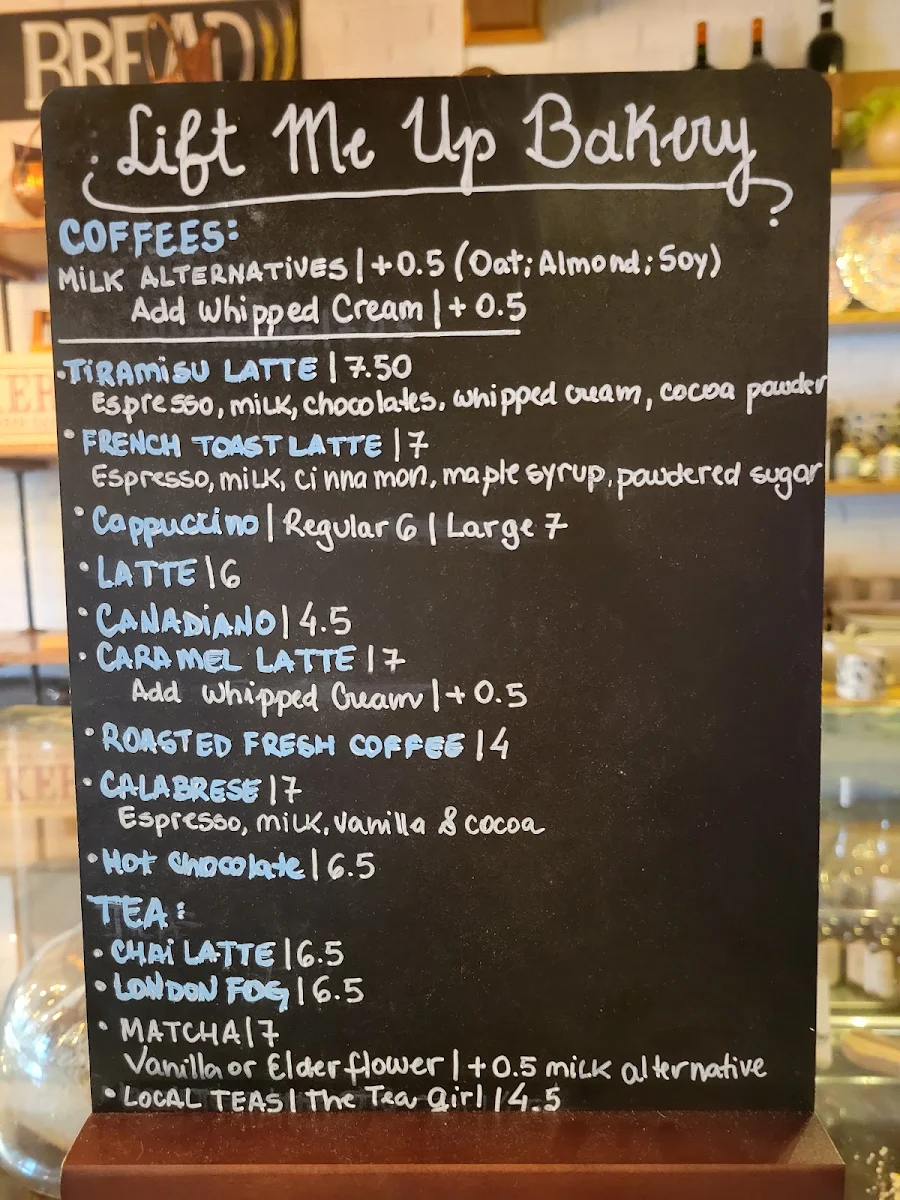 BREAD
Lift Me Up Bakery
COFFEES:
MILK ALTERNATIVES | +0.5 (Oat; Almond; Soy)
Add Whipped Cream | + 0.5
•TIRAMISU LATTE | 7.50
Espresso, milk, chocolates, whipped cream, cocoa powder
• FRENCH TOAST LATTE | 7
Espresso, milk, cinnamon, maple syrup, powdered sugar
• Cappuccino | Regular 6 | Large 7
• LATTE | 6
• CANADIANO | 4.5
• CARAMEL LATTE | 7
Add Whipped Cream | + 0.5
• ROASTED FRESH COFFEE | 4
• CALABRESE | 7
Espresso, milk, vanilla & cocoa
• Hot Chocolate | 6.5
TEA:
• CHAI LATTE | 6.5
• LONDON FOG | 6.5
• MATCHA | 7
Vanilla or Elderflower | +0.5 milk alternative
• LOCAL TEAS | The Tea Girl | 4.5